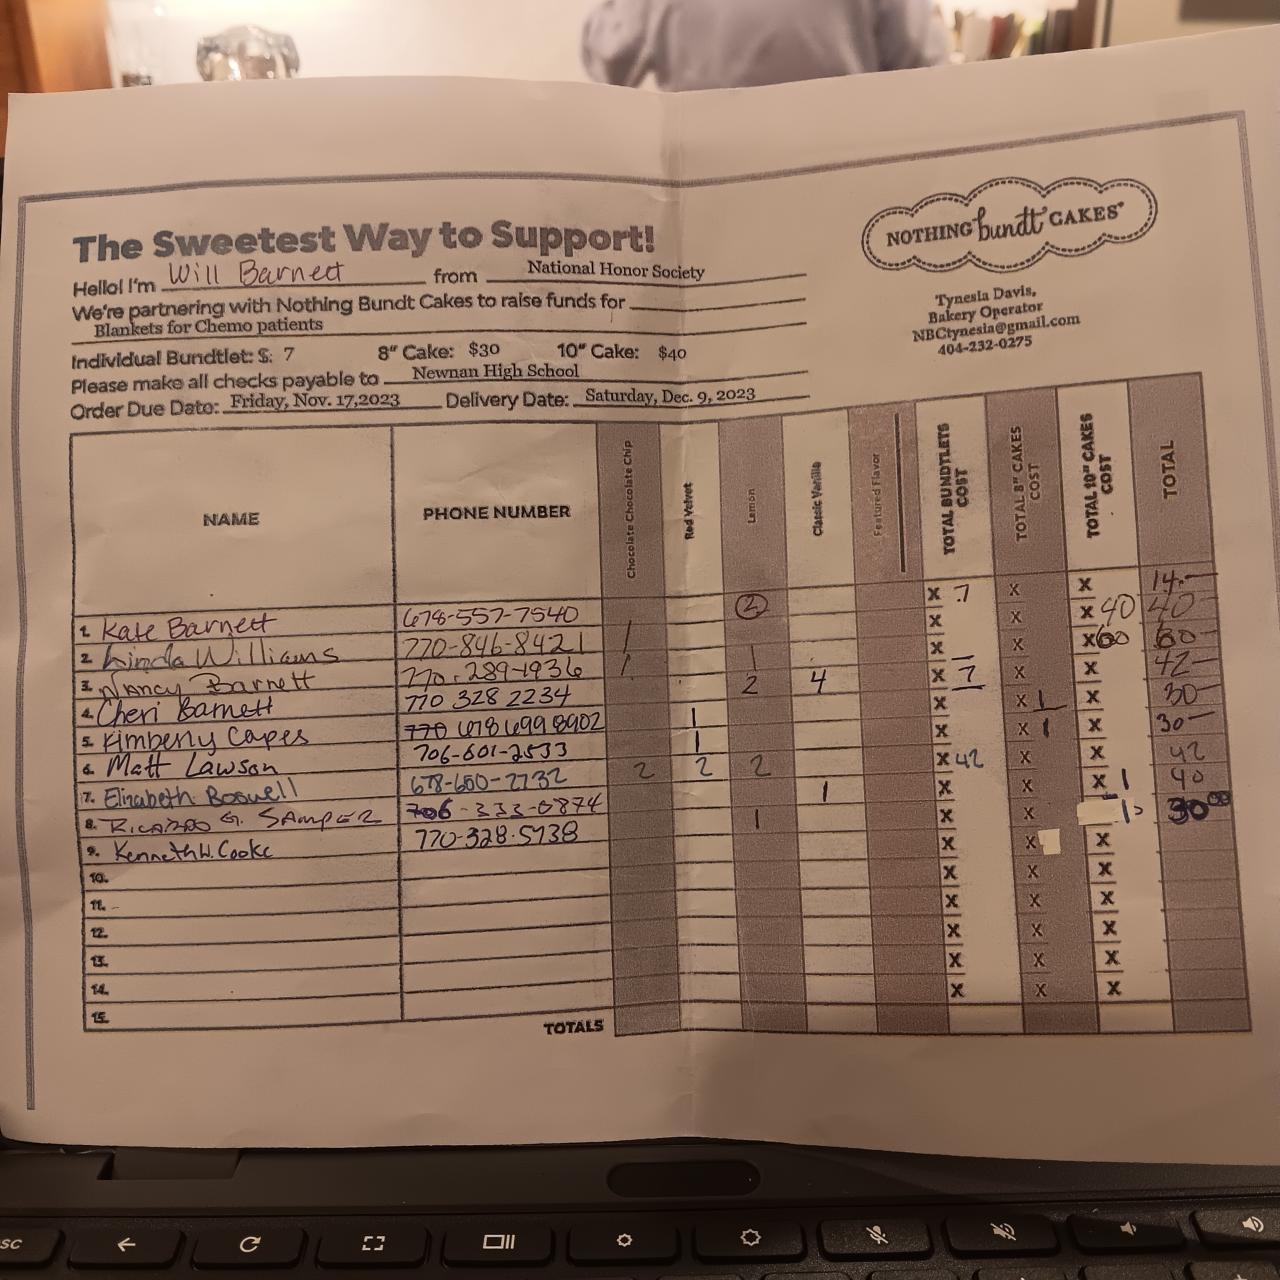 The Sweetest Way to Support!
NOTHING bundt CAKES®
Hello! I'm Will Barnett from National Honor Society
We're partnering with Nothing Bundt Cakes to raise funds for
Blankets for Chemo patients
Tynesia Davis,
Bakery Operator
NBCtynesia@gmail.com
404-232-0275
Individual Bundtlet: $: 7 8" Cake: $30 10" Cake: $40
Please make all checks payable to Newnan High School
Order Due Date: Friday, Nov. 17,2023 Delivery Date: Saturday, Dec. 9, 2023
NAME PHONE NUMBER Chocolate Chocolate Chip Red Velvet Lemon Classic Vanilla Featured Flavor TOTAL BUNDTLETS COST TOTAL 8" CAKES COST TOTAL 10" CAKES COST TOTAL
1. Kate Barnett 678-557-7540 2 X 7 X X 14.-
2. Linda Williams 770-846-8421 1 X X X 40 40-
3. Nancy Barnett 770-289-1936 1 1 X X X 60 60-
4. Cheri Barnett 770 328 2234 2 4 X 7 X X 42-
5. Kimberly Capes 770 678 699 8902 1 X X 1 X 30-
6. Matt Lawson 706-601-2533 1 X X 1 X 30-
7. Elizabeth Boswell 678-600-7732 2 2 2 X 42 X X 42
8. RICARDO G. SAMPER 706-333-0874 1 X X X 1 40
9. Kenneth W. Cooke 770-328-5738 1 X X 1 30 00
10. X X X
11. X X X
12. X X X
13. X X X
14. X X X
15. X X X
TOTALS